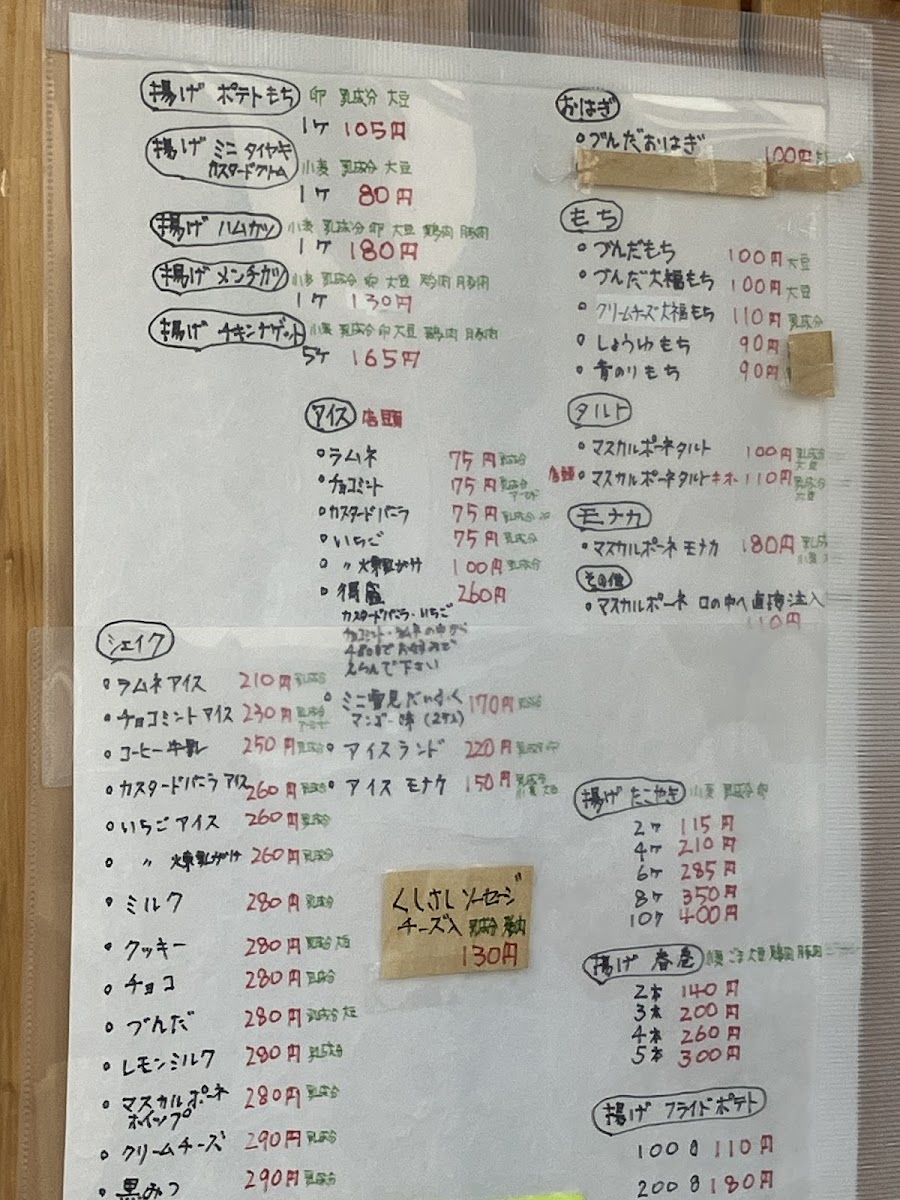 揚げ ポテトもち 卵 乳成分 大豆
1ケ 105円
揚げ ミニ タイヤキ
カスタードクリーム 小麦 乳成分 大豆
1ケ 80円
揚げ ハムカツ 小麦 乳成分 卵 大豆 鶏肉 豚肉
1ケ 180円
揚げ メンチカツ 小麦 乳成分 卵 大豆 鶏肉 豚肉
1ケ 130円
揚げ チキンナゲット 小麦 乳成分 卵 大豆 鶏肉 豚肉
5ケ 165円
おはぎ
づんだおはぎ
100円
もち
づんだもち 100円 大豆
づんだ大福もち 100円 大豆
クリームチーズ大福もち 110円 乳成分
しょうゆもち 90円
青のりもち 90円
タルト
マスカルポーネタルト 100円 乳成分
大豆
店頭 マスカルポーネタルト 110円 乳成分
大豆
モナカ
マスカルポーネ モナカ 180円
その他
マスカルポーネ 口の中へ直接注入
110円
アイス 店頭
ラムネ 75円 乳成分
チョコミント 75円 乳成分
アーモンド
カスタードバニラ 75円 乳成分 卵
いちご 75円 乳成分
〃 煉乳がけ 100円 乳成分
得盛 260円
カスタードバニラ・いちご
チョコミント・ラムネの中から
お好みで
えらんで下さい
ミニ雪見だいふく 170円 乳成分
マンゴー味 (2ケ入)
アイスランド 220円 乳成分 卵
アイス モナケ 150円 乳成分
小麦 大豆
シェイク
ラムネアイス 210円 乳成分
チョコミントアイス 230円 乳成分
アーモンド
コーヒー牛乳 250円 乳成分
カスタードバニラアイス 260円 乳成分
いちごアイス 260円 乳成分
〃 煉乳がけ 260円 乳成分
ミルク 280円 乳成分
クッキー 280円 乳成分 大豆
チョコ 280円 乳成分
づんだ 280円 乳成分 大豆
レモンミルク 280円 乳成分
マスカルポーネ
ホイップ 280円 乳成分
クリームチーズ 290円 乳成分
黒みつ 290円 乳成分
くしさしソーセージ
チーズ入 乳成分 豚肉
130円
揚げ たこやき 小麦 乳成分 卵
2ケ 115円
4ケ 210円
6ケ 285円
8ケ 350円
10ケ 400円
揚げ 春巻 小麦 ごま 大豆 鶏肉 豚肉
2本 140円
3本 200円
4本 260円
5本 300円
揚げ フライドポテト
100g 110円
200g 180円